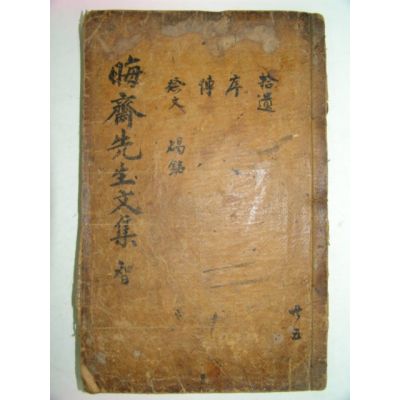 拾遺
序
傳
祭文 碣銘
晦齋先生文集 智
共五